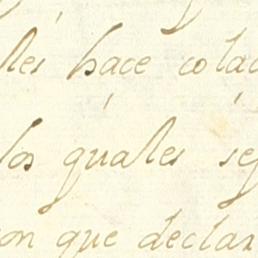 les hace cola
los quáles se
on que declar